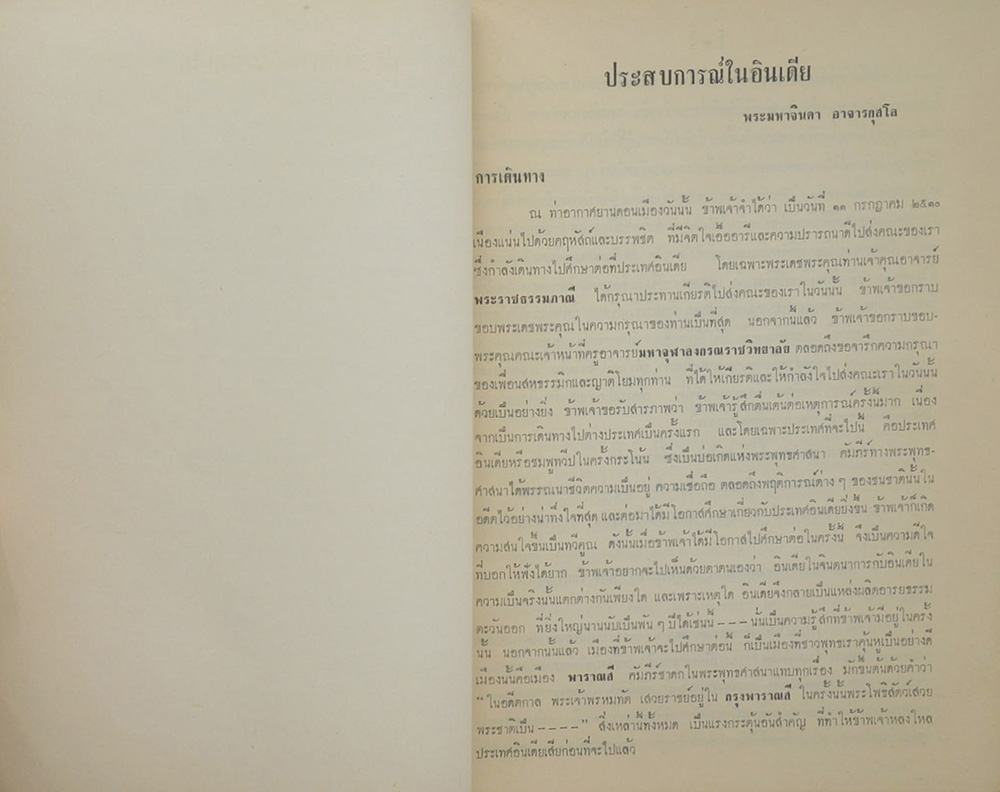 ประสบการณ์ในอินเดีย
พระมหาจินดา อาจารกุสโล
การเดินทาง
ณ ท่าอากาศยานดอนเมืองวันนั้น ข้าพเจ้าจำได้ว่า เป็นวันที่ ๑๑ กรกฎาคม ๒๕๑๐
เนืองแน่นไปด้วยคฤหัสถ์และบรรพชิต ที่มีจิตใจเอื้ออารีและความปรารถนาดีไปส่งคณะของเรา
ซึ่งกำลังเดินทางไปศึกษาต่อที่ประเทศอินเดีย โดยเฉพาะพระเดชพระคุณท่านเจ้าคุณอาจารย์
พระราชธรรมภาณี ได้กรุณาประทานเกียรติไปส่งคณะของเราในวันนั้น ข้าพเจ้าขอกราบ
ขอบพระเดชพระคุณในความกรุณาของท่านเป็นที่สุด นอกจากนั้นแล้ว ข้าพเจ้าขอกราบขอบ-
พระคุณคณะเจ้าหน้าที่ครูอาจารย์มหาจุฬาลงกรณราชวิทยาลัย ตลอดถึงขอจารึกความกรุณา
ของเพื่อนสหธรรมิกและญาติโยมทุกท่าน ที่ได้ให้เกียรติและให้กำลังใจไปส่งคณะเราในวันนั้น
ด้วยเป็นอย่างยิ่ง ข้าพเจ้าขอรับสารภาพว่า ข้าพเจ้ารู้สึกตื่นเต้นต่อเหตุการณ์ครั้งนี้มาก เนื่อง
จากเป็นการเดินทางไปต่างประเทศเป็นครั้งแรก และโดยเฉพาะประเทศที่จะไปนี้ คือประเทศ
อินเดียหรือชมพูทวีปในครั้งกระโน้น ซึ่งเป็นบ่อเกิดแห่งพระพุทธศาสนา คัมภีร์ทางพระพุทธ-
ศาสนาได้พรรณนาชีวิตความเป็นอยู่ ความเชื่อถือ ตลอดถึงพฤติการณ์ต่าง ๆ ของชนชาตินั้นใน
อดีตไว้อย่างน่าทึ่งใจที่สุด และต่อมาได้มีโอกาสศึกษาเกี่ยวกับประเทศอินเดียยิ่งขึ้น ข้าพเจ้าก็เกิด
ความสนใจขึ้นเป็นทวีคูณ ดังนั้นเมื่อข้าพเจ้าได้มีโอกาสไปศึกษาต่อในครั้งนี้ จึงเป็นความดีใจ
ที่บอกให้ฟังได้ยาก ข้าพเจ้าอยากจะไปเห็นด้วยตาตนเองว่า อินเดียในจินตนาการกับอินเดียใน
ความเป็นจริงนั้นแตกต่างกันเพียงใด และเพราะเหตุใด อินเดียจึงกลายเป็นแหล่งผลิตอารยธรรม
ตะวันออก ที่ยิ่งใหญ่นานนับเป็นพัน ๆ ปีได้เช่นนี้ – – – นั่นเป็นความรู้สึกที่ข้าพเจ้ามีอยู่ในครั้ง
นั้น นอกจากนั้นแล้ว เมืองที่ข้าพเจ้าจะไปศึกษาต่อนี้ ก็เป็นเมืองที่ชาวพุทธเราคุ้นหูเป็นอย่างดี
เมืองนั้นคือเมือง พาราณสี คัมภีร์ชาดกในพระพุทธศาสนาแทบทุกเรื่อง มักขึ้นต้นด้วยคำว่า
“ในอดีตกาล พระเจ้าพรหมทัต เสวยราชย์อยู่ใน กรุงพาราณสี ในครั้งนั้นพระโพธิสัตว์เสวย
พระชาติเป็น – – – –” สิ่งเหล่านี้ทั้งหมด เป็นแรงกระตุ้นอันสำคัญ ที่ทำให้ข้าพเจ้าหลงใหล
ประเทศอินเดียเสียก่อนที่จะไปแล้ว